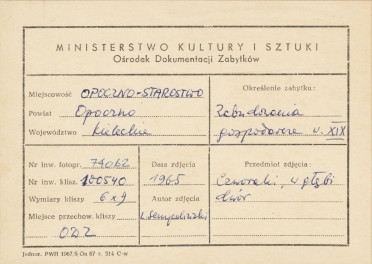 MINISTERSTWO KULTURY I SZTUKI
Ośrodek Dokumentacji Zabytków
Miejscowość OPOCZNO-STAROSTWO
Powiat Opoczno
Województwo Kieleckie
Określenie zabytku:
Zabudowania
gospodarcze w. XIX
Nr inw. fotogr. 74062
Nr inw. klisz. 100540
Wymiary kliszy 6x9
Miejsce przechow. kliszy
ODZ
Data zdjęcia
1965
Autor zdjęcia
Przedmiot zdjęcia:
Czworaki, w głębi
dwór
Jednor. PWR 1967.S On 67 z. 514 C-w